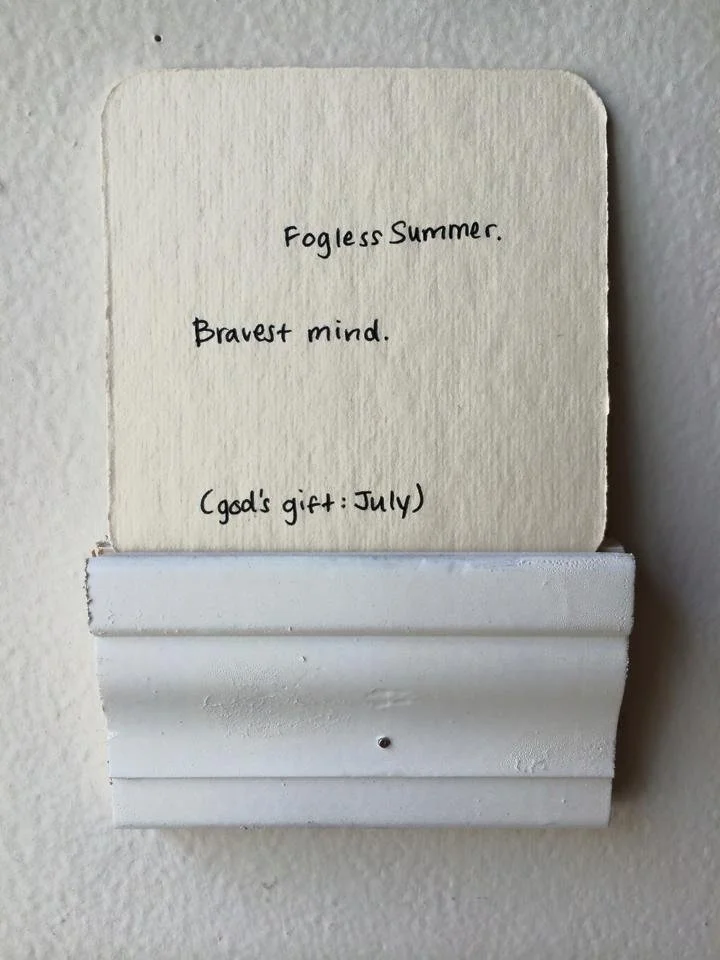 Fogless Summer.
Bravest mind.
(god's gift: July)